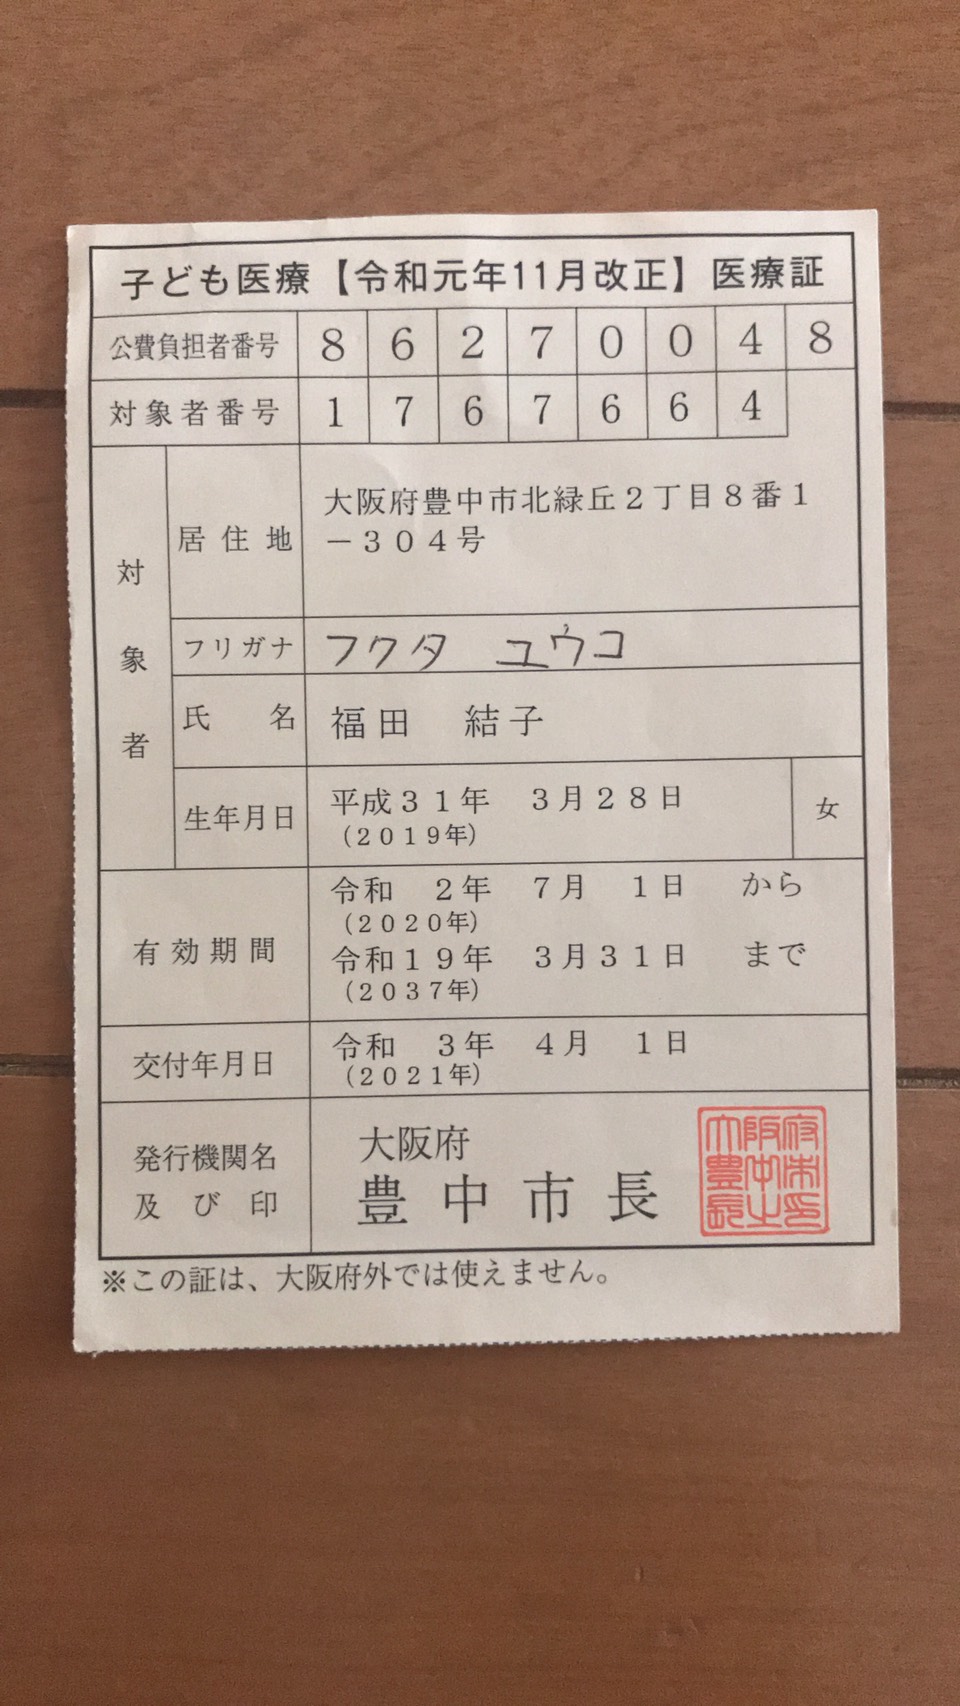 子ども医療【令和元年11月改正】医療証
公費負担者番号 8 6 2 7 0 0 4 8
対象者番号 1 7 6 7 6 6 4
対象者
居住地 大阪府豊中市北緑丘２丁目８番１
－３０４号
フリガナ フクタ ユウコ
氏名 福田 結子
生年月日 平成３１年 ３月２８日 女
（２０１９年）
有効期間 令和 ２年 ７月 １日 から
（２０２０年）
令和１９年 ３月３１日 まで
（２０３７年）
交付年月日 令和 ３年 ４月 １日
（２０２１年）
発行機関名
及び印
大阪府
豊中市長
大阪府豊中市長之印
※この証は、大阪府外では使えません。